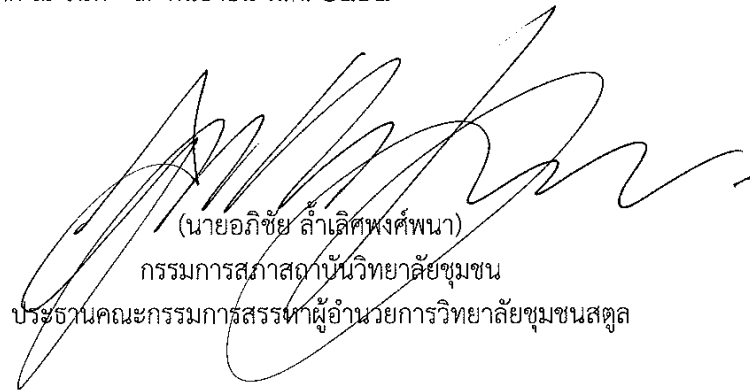 (นายอภิชัย ล้ำเลิศพงศ์พนา)
กรรมการสภาสถาบันวิทยาลัยชุมชน
ประธานคณะกรรมการสรรหาผู้อำนวยการวิทยาลัยชุมชนสตูล